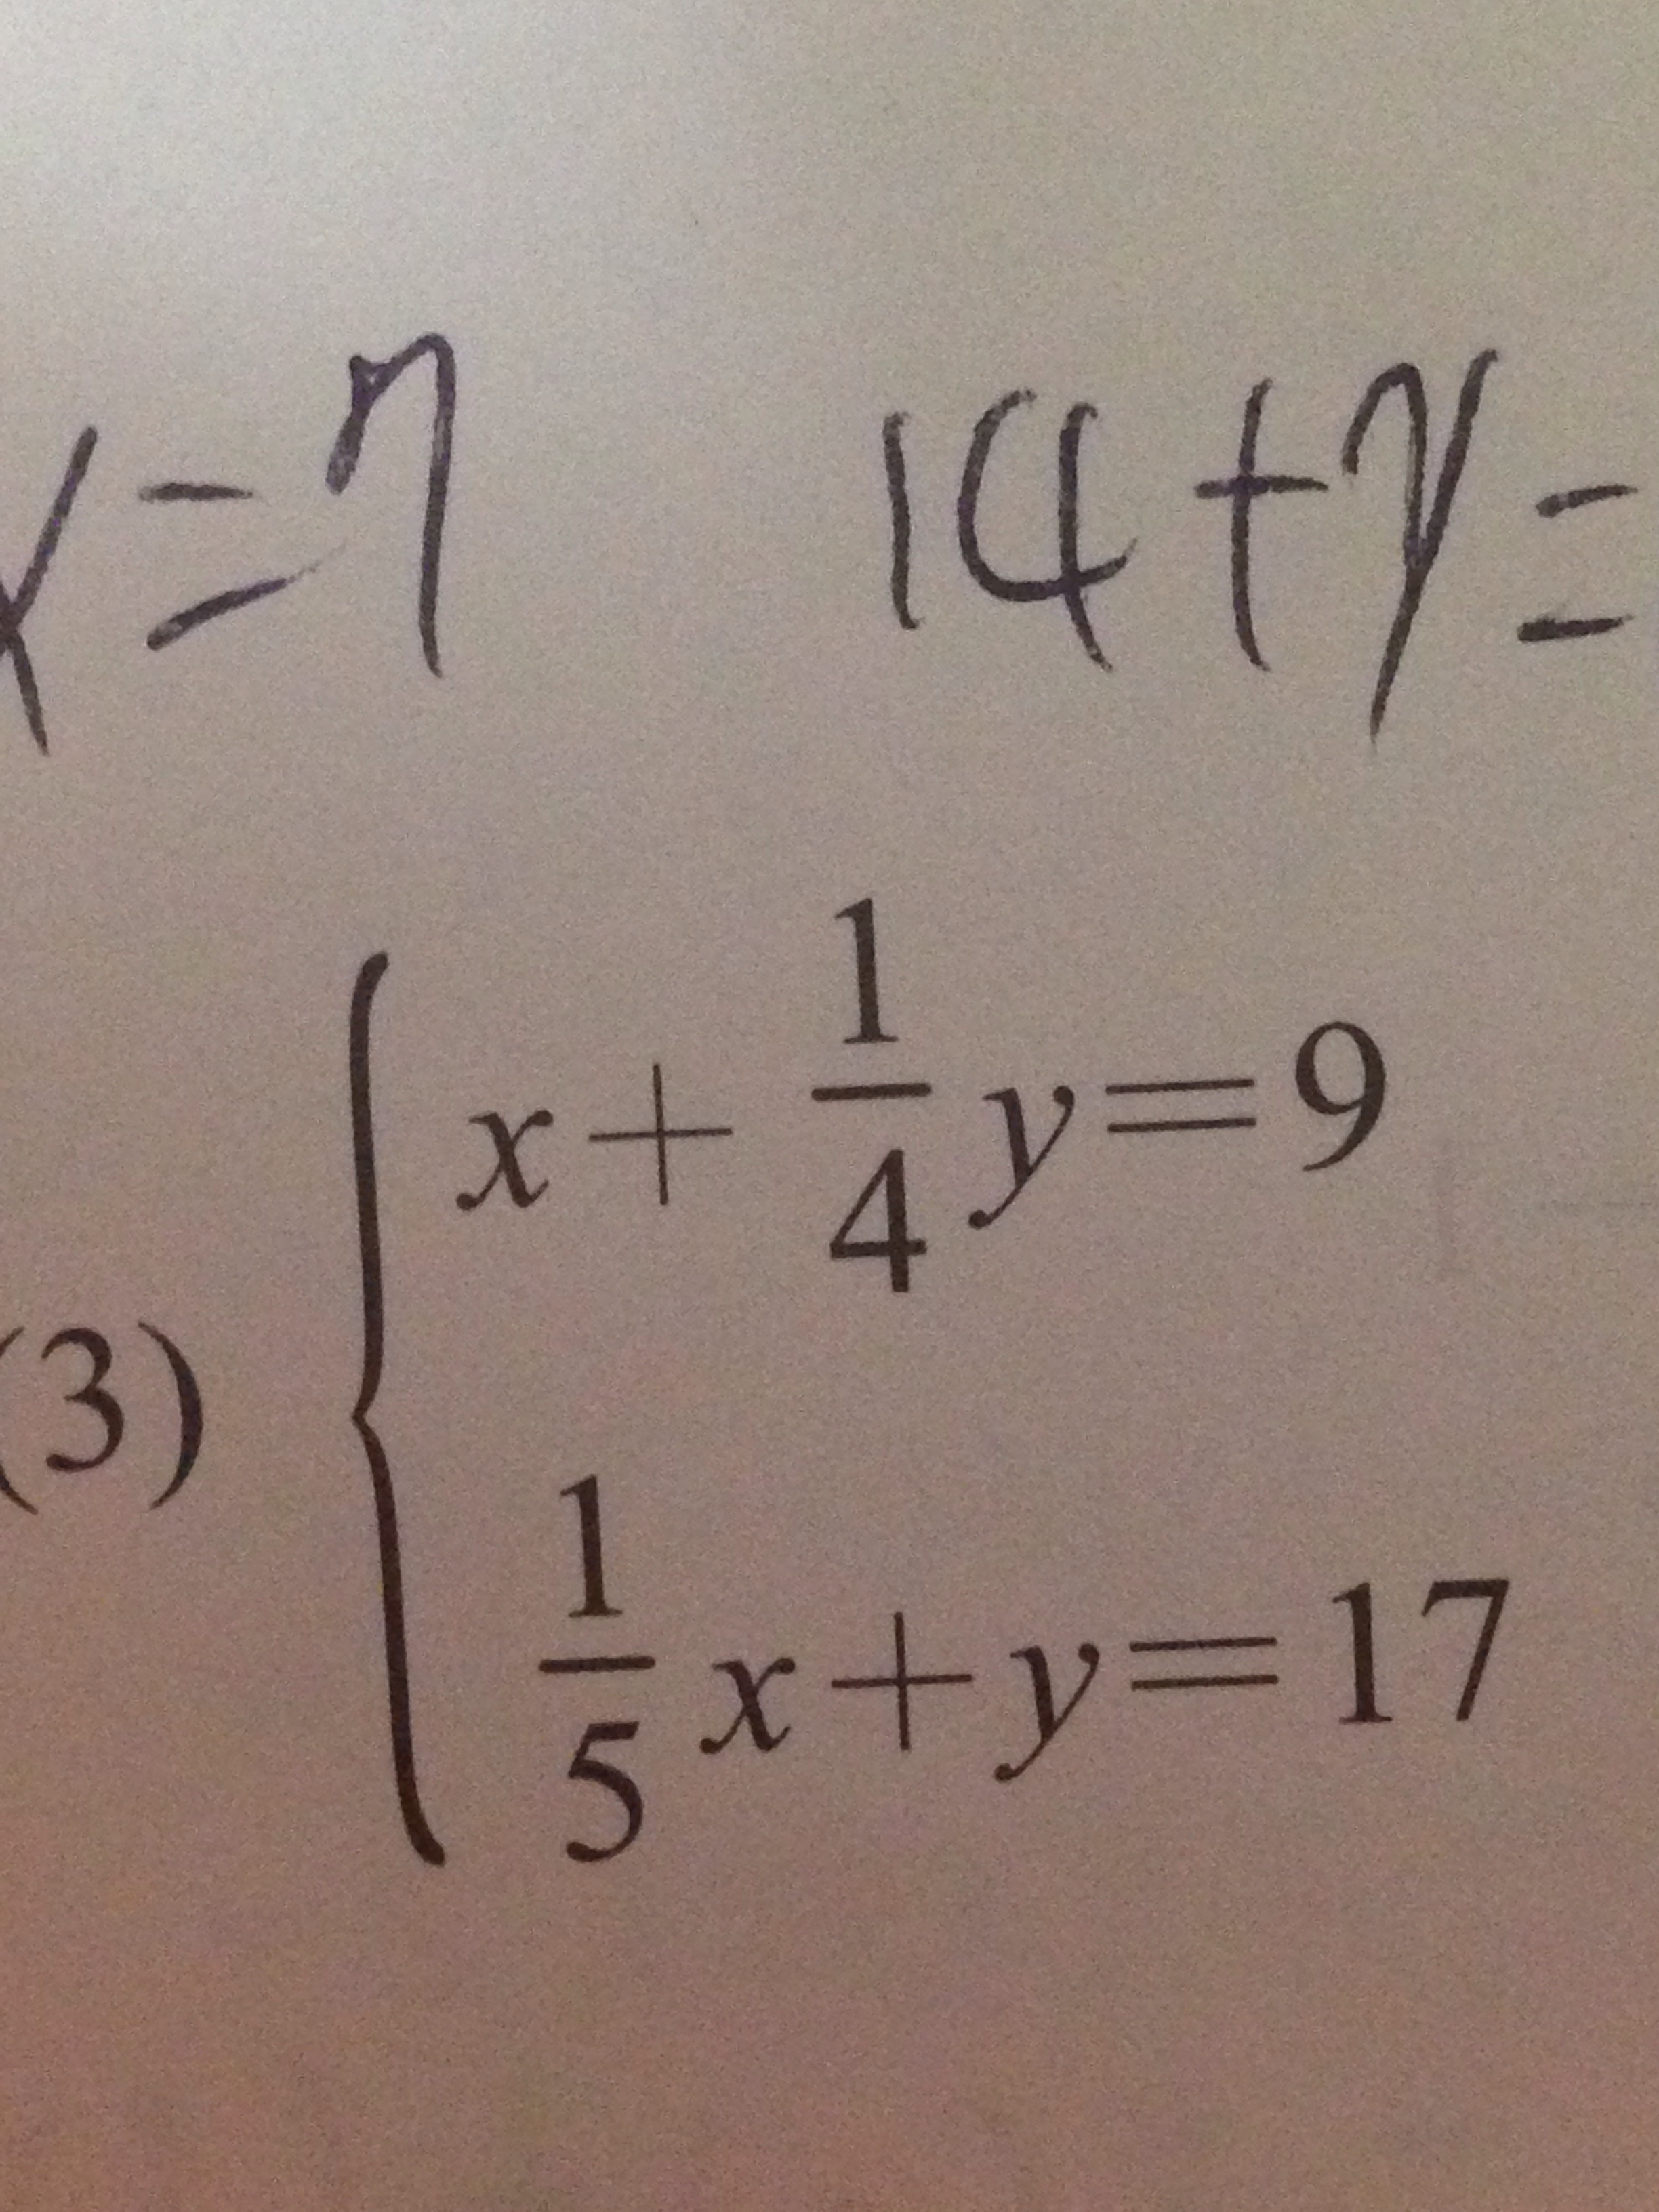 x=7 14+y=
x+1/4y=9
(3)
1/5x+y=17